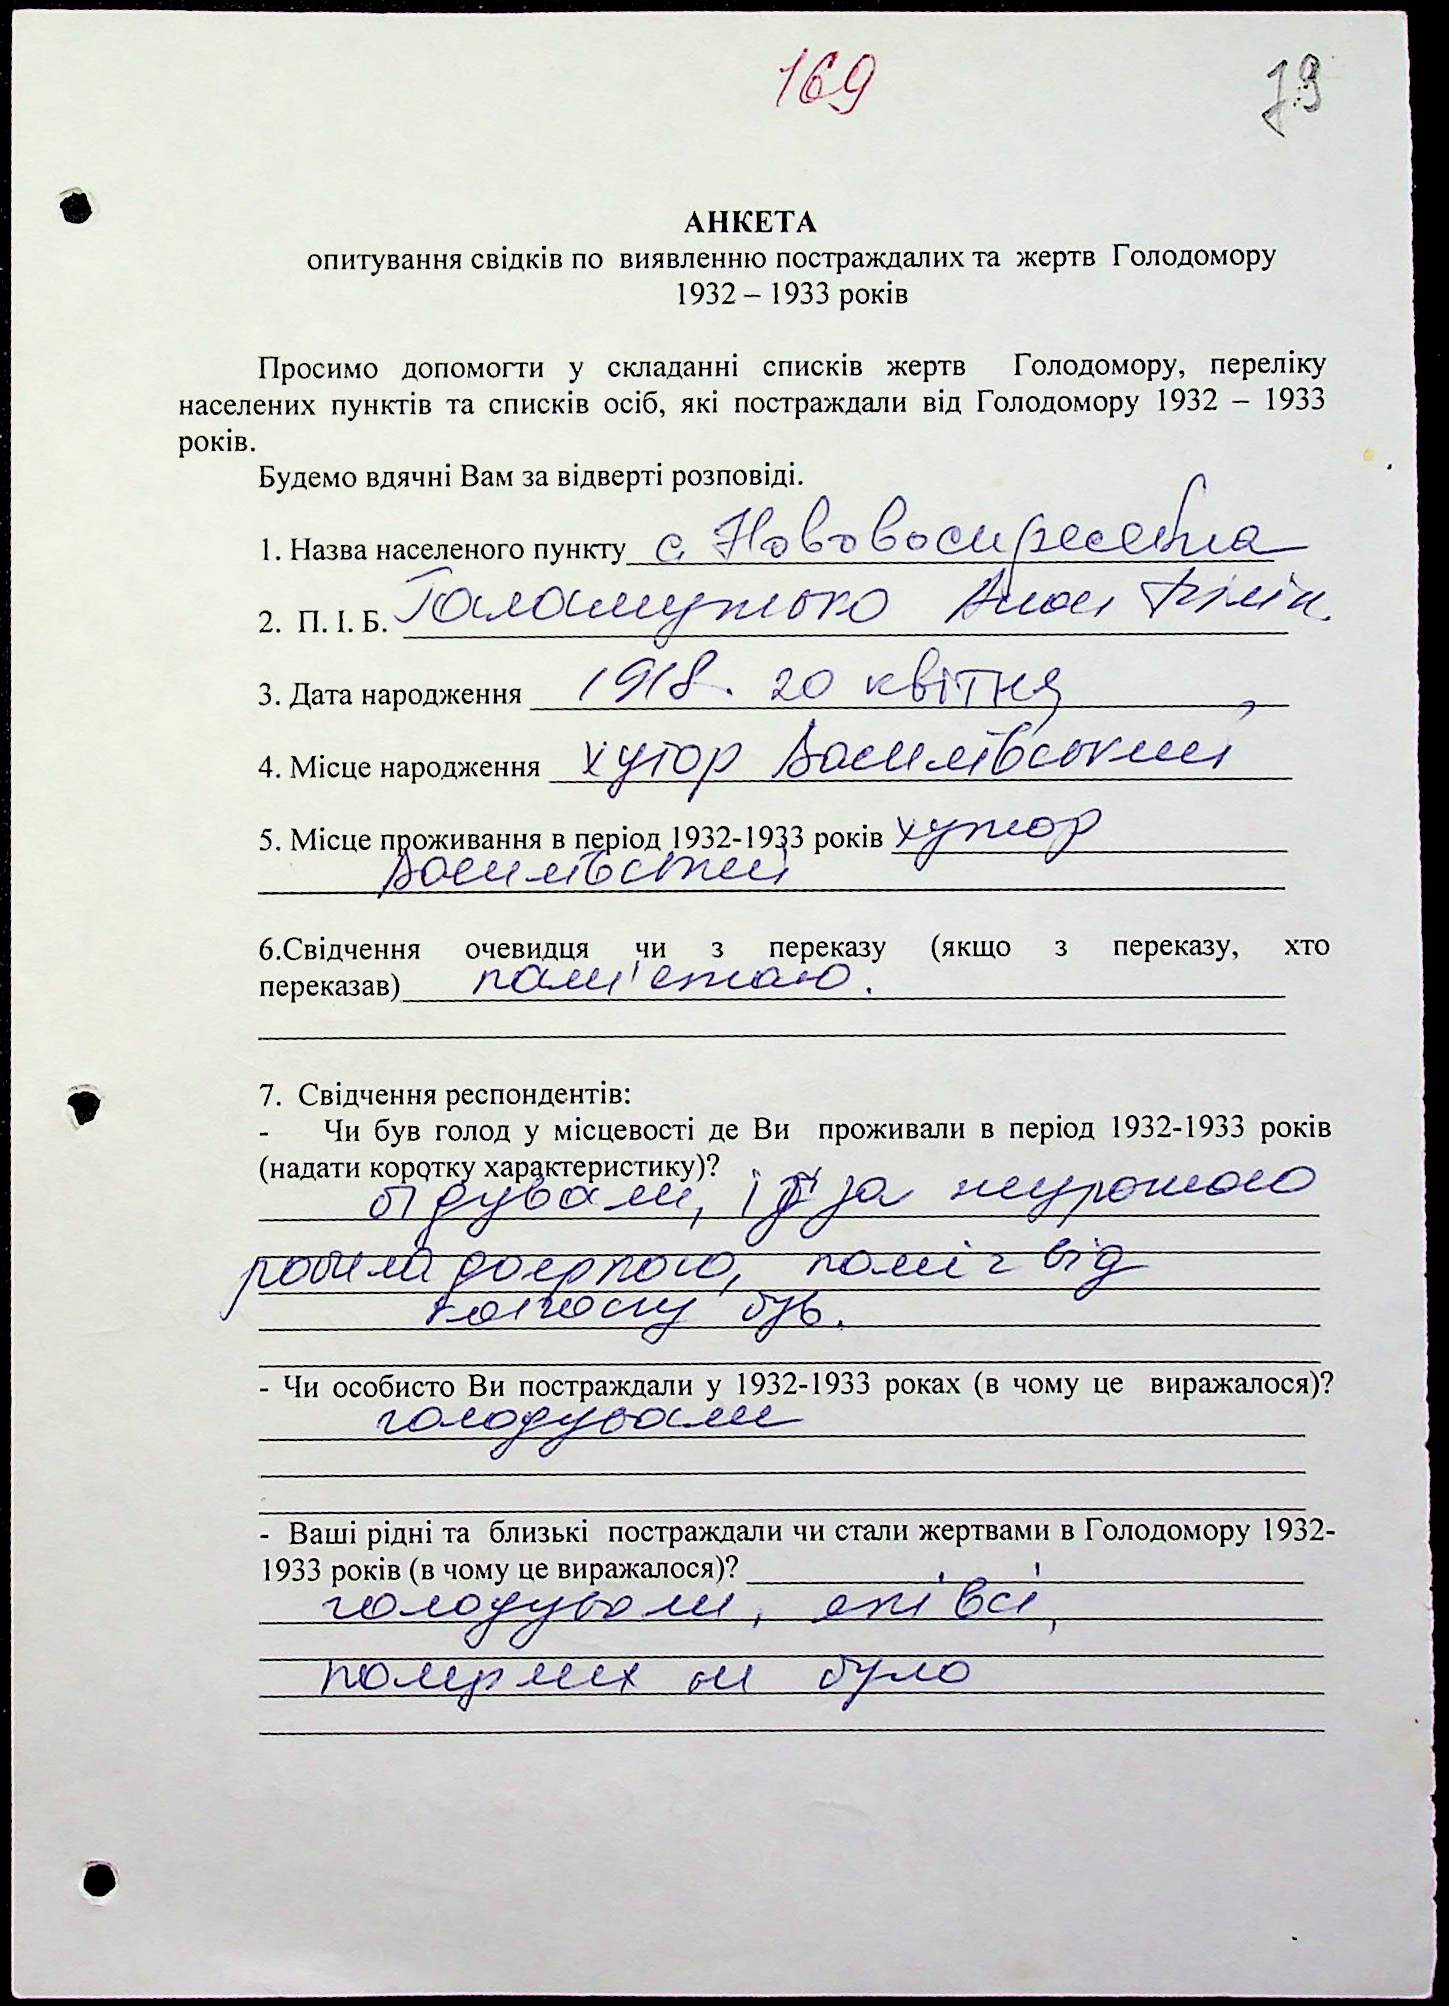 169
79
АНКЕТА
опитування свідків по виявленню постраждалих та жертв Голодомору
1932 – 1933 років
Просимо допомогти у складанні списків жертв Голодомору, переліку
населених пунктів та списків осіб, які постраждали від Голодомору 1932 – 1933
років.
Будемо вдячні Вам за відверті розповіді.
1. Назва населеного пункту с. Нововоскресенка
2. П. І. Б.
3. Дата народження 1918. 20 квітня
4. Місце народження хутор Василівський
5. Місце проживання в період 1932-1933 років хутор
Василівський
6.Свідчення очевидця чи з переказу (якщо з переказу, хто
переказав) пам'ятаю.
7. Свідчення респондентів:
- Чи був голод у місцевості де Ви проживали в період 1932-1933 років
(надати коротку характеристику)?
бідували, за
робила дояркою, поміч від
колгоспу був.
- Чи особисто Ви постраждали у 1932-1933 роках (в чому це виражалося)?
голодували
- Ваші рідні та близькі постраждали чи стали жертвами в Голодомору 1932-
1933 років (в чому це виражалося)?
голодували, як і всі,
померлих не було